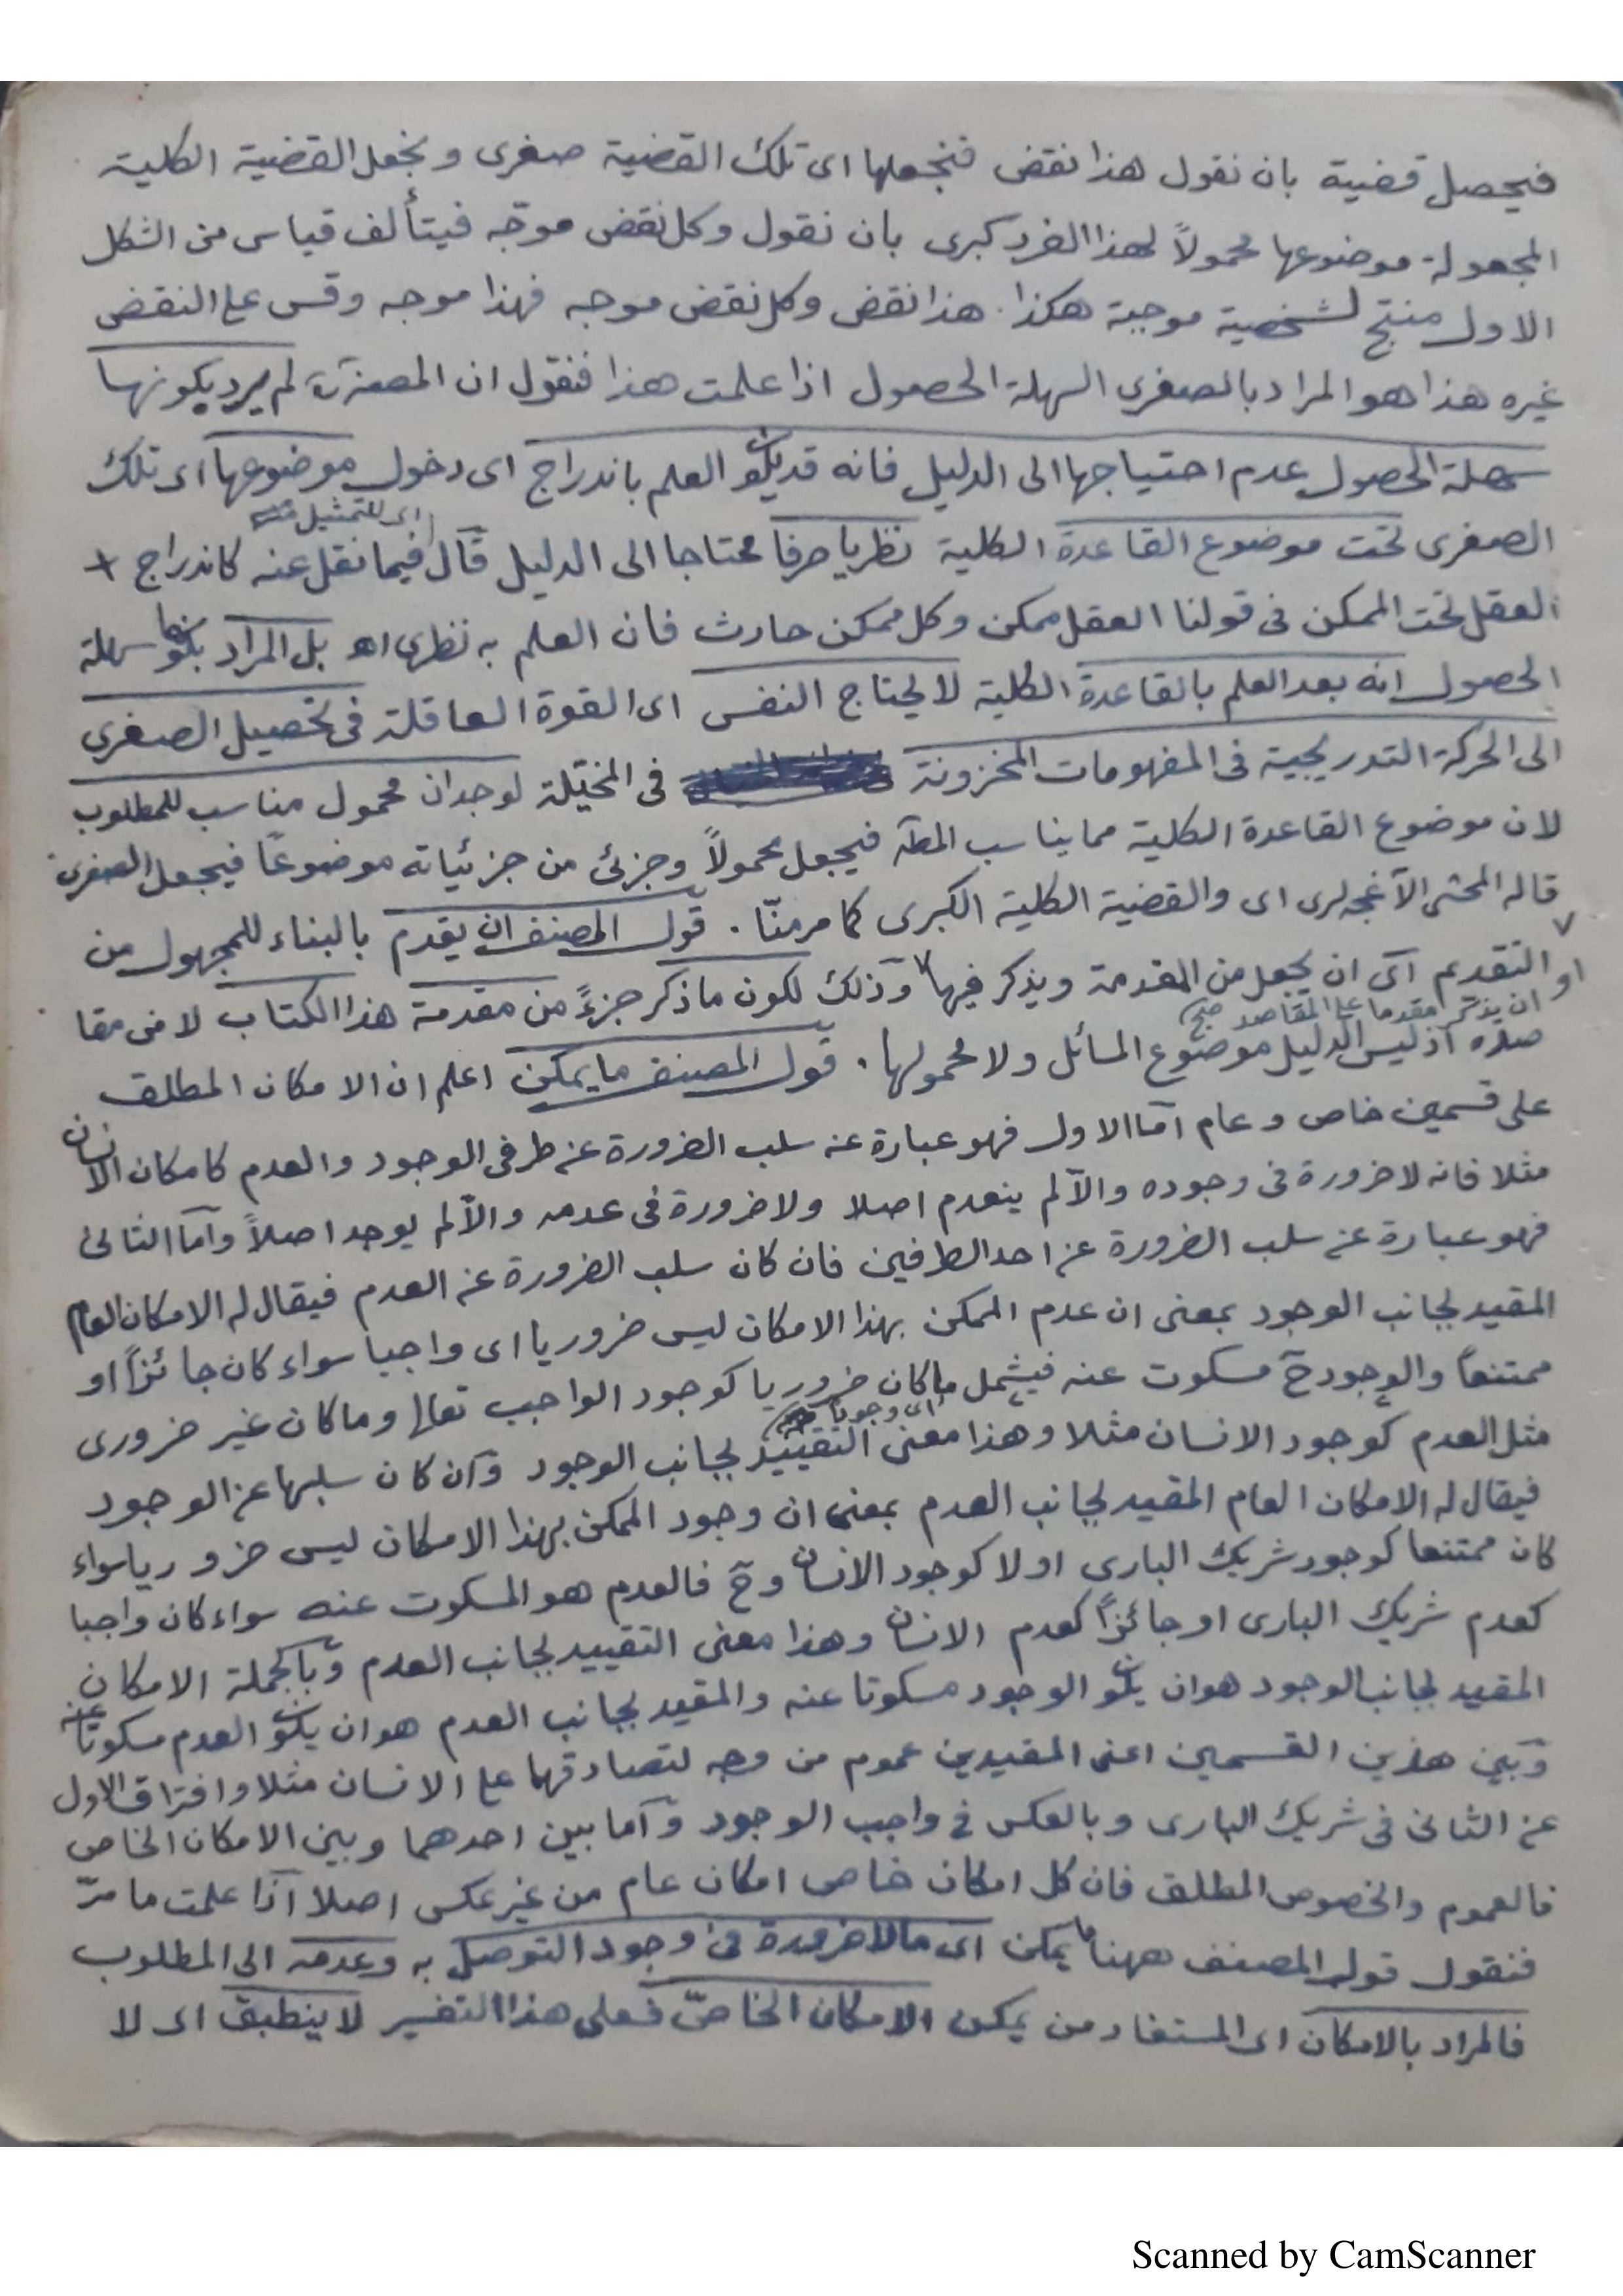 فيحصل قضية بان نقول هذا نقض فنجعلها اى تلك القضية صغرى ونجعل القضية الكلية
المجعولة موضوعها محمولاً لهذا الفرد كبرى بان نقول وكل نقض موجّه فيتألف قياس من الشكل
الاول منتج لشخصية موجبة هكذا هذا نقض وكل نقض موجه فهذا موجه وقس على النقض
غيره هذا هو المراد بالصغرى السهلة الحصول اذا علمت هذا فنقول ان المصنف لم يرد بكونها
سهلة الحصول عدم احتياجها الى الدليل فانه قد يكون العلم باندراج اى دخول موضوعها اى تلك
اى للتمثيل
الصغرى تحت موضوع القاعدة الكلية نظريا صرفا محتاجا الى الدليل قال فيما نقل عنه كاندراج +
العقل تحت الممكن فى قولنا العقل ممكن وكل ممكن حادث فان العلم به نظرى اه بل المراد بكونها سهلة
الحصول انه بعد العلم بالقاعدة الكلية لا يحتاج النفس اى القوة العاقلة فى تحصيل الصغرى
الى الحركة التدريجية فى المفهومات المخزونة فى المخيّلة لوجدان محمول مناسب للمطلوب
لان موضوع القاعدة الكلية مما يناسب المط فيجعل محمولاً وجزئى من جزئياته موضوعًا فيجعل الصغرى
قاله المحشى الآغجه لرى اى والقضية الكلية الكبرى كما مر منّا . قول المصنف ان يقدم بالبناء للمجهول من
التقديم اى ان يجعل من المقدمة ويذكر فيها وذلك لكون ما ذكر جزءً من مقدمة هذا الكتاب لا من مقا
او ان يذكر مقدما على المقاصد صح
صده اذ ليس الدليل موضوع المسائل ولا محمولها . قول المصنف ما يمكن اعلم ان الامكان المطلق
على قسمين خاص وعام اما الاول فهو عبارة عن سلب الضرورة عن طرفى الوجود والعدم كامكان الانسان
مثلا فانه لا ضرورة فى وجوده والّا لم ينعدم اصلا ولا ضرورة فى عدمه والّا لم يوجد اصلاً واما الثانى
فهو عبارة عن سلب الضرورة عن احد الطرفين فان كان سلب الضرورة عن العدم فيقال له الامكان العام
المقيد لجانب الوجود بمعنى ان عدم الممكن بهذا الامكان ليس ضروريا اى واجبا سواء كان جائزًا او
ممتنعًا والوجود ح مسكوت عنه فيشمل ما كان ضروريا كوجود الواجب تعالى وما كان غير ضرورى
اى وجوبا
مثل العدم كوجود الانسان مثلا وهذا معنى التقييد لجانب الوجود وان كان سلبها عن الوجود
فيقال له الامكان العام المقيد لجانب العدم بمعنى ان وجود الممكن بهذا الامكان ليس ضروريا سواء
كان ممتنعا كوجود شريك البارى او لا كوجود الانسان وح فالعدم هو المسكوت عنه سواء كان واجبا
كعدم شريك البارى او جائزًا كعدم الانسان وهذا معنى التقييد لجانب العدم وبالجملة الامكان
المقيد لجانب الوجود هو ان يكون الوجود مسكوتا عنه والمقيد لجانب العدم هو ان يكون العدم مسكوتا عنه
وبين هذين القسمين اعنى المقيدين عموم من وجه لتصادقهما على الانسان مثلا وافتراق الاول
عن الثانى فى شريك البارى وبالعكس فى واجب الوجود واما بين احدهما وبين الامكان الخاص
فالعموم والخصوص المطلق فان كل امكان خاص امكان عام من غير عكس اصلا اذا علمت ما مرّ
فنقول قول المصنف ههنا ما يمكن اى مالا ضرورة فى وجود التوصل به وعدمه الى المطلوب
فالمراد بالامكان اى المستفاد من يمكن الامكان الخاصّ فعلى هذا التفسير لا ينطبق اى لا
Scanned by CamScanner